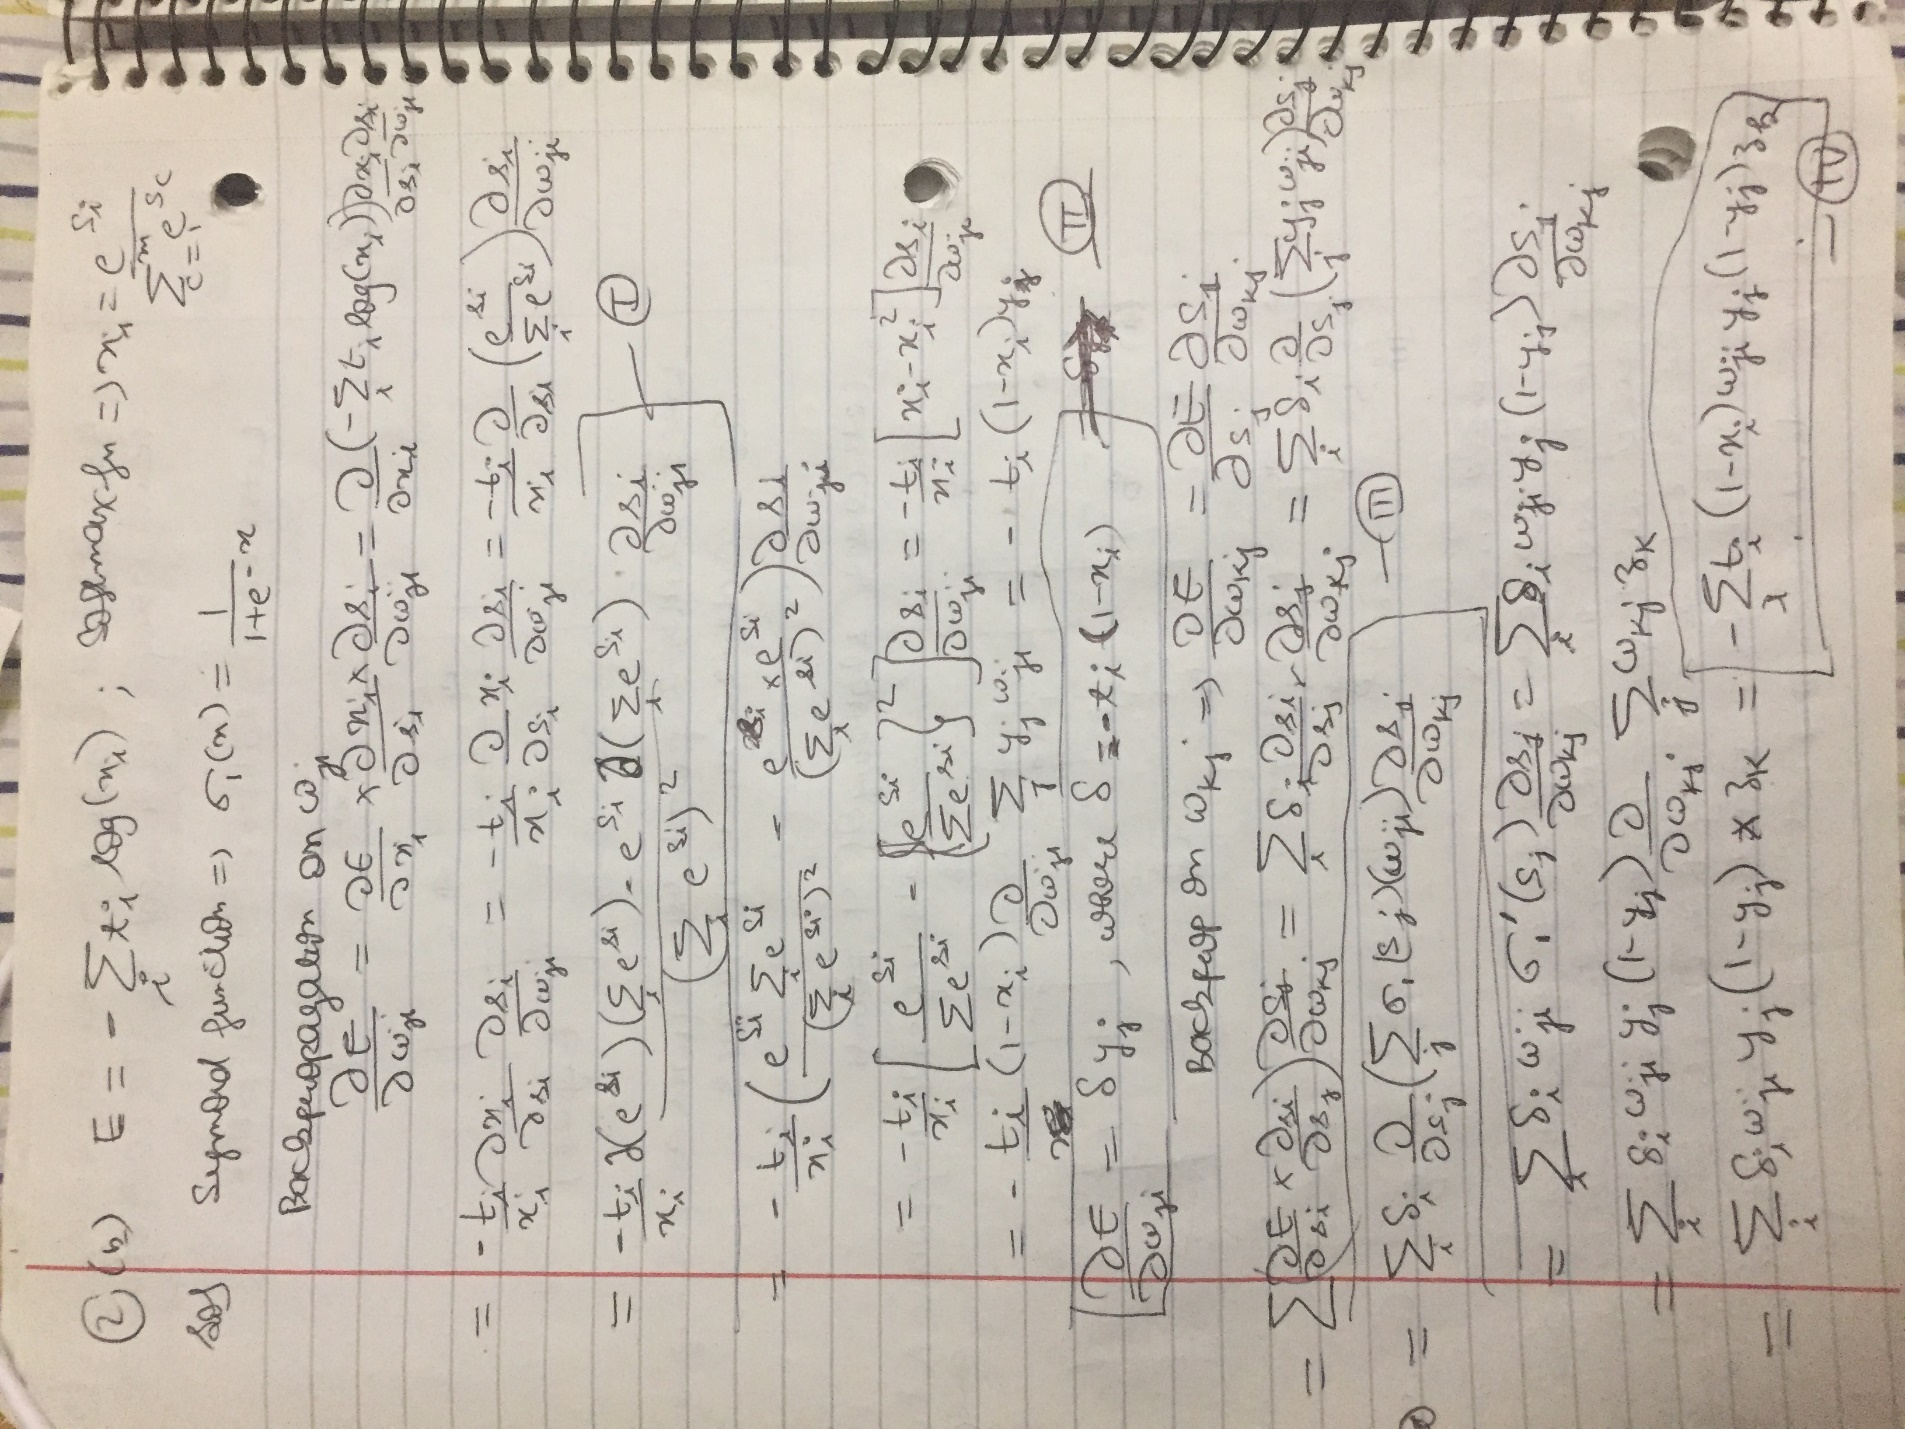 ② (b) E = - ∑_i t_i log(x_i) ; softmax fn => x_i = e^{s_i} / ∑_{c=1}^{m} e^{s_c}
Sol Sigmoid function => σ_1(x) = 1 / (1+e^{-x})
Backpropagation on ω_{ji}
∂E/∂ω_{ji} = ∂E/∂x_i × ∂x_i/∂s_i × ∂s_i/∂ω_{ji} = ∂/∂x_i (-∑_i t_i log(x_i)) ∂x_i/∂s_i ∂s_i/∂ω_{ji}
= -t_i/x_i ∂x_i/∂s_i ∂s_i/∂ω_{ji} = -t_i/x_i ∂/∂s_i x_i ∂s_i/∂ω_{ji} = -t_i/x_i ∂/∂s_i (e^{s_i} / ∑_i e^{s_i}) ∂s_i/∂ω_{ji}
= -t_i/x_i ∂(e^{s_i})(∑_i e^{s_i}) - e^{s_i} ∂(∑_i e^{s_i}) / (∑_i e^{s_i})^2 . ∂s_i/∂ω_{ji} — Ⓘ
= -t_i/x_i (e^{s_i} ∑_i e^{s_i} / (∑_i e^{s_i})^2 - e^{s_i} × e^{s_i} / (∑_i e^{s_i})^2) ∂s_i/∂ω_{ji}
= -t_i/x_i [e^{s_i} / ∑ e^{s_i} - {e^{s_i} / ∑ e^{s_i}}^2] ∂s_i/∂ω_{ji} = -t_i/x_i [x_i - x_i^2] ∂s_i/∂ω_{ji}
= -t_i (1-x_i) ∂/∂ω_{ji} ∑_j y_j ω_{ji} = - t_i (1-x_i) y_j
∂E/∂ω_{ji} = δ y_j , where δ = -t_i (1-x_i) — Ⅱ
Backprop on ω_{kj} => ∂E/∂ω_{kj} = ∂E/∂s_j ∂s_j/∂ω_{kj}
= ∑_i (∂E/∂s_i × ∂s_i/∂s_j) ∂s_j/∂ω_{kj} = ∑_i δ_i ∂s_i/∂s_j . ∂s_j/∂ω_{kj} = ∑_i δ_i ∂/∂s_j (∑_j y_j ω_{ji}) ∂s_j/∂ω_{kj}
= ∑_i δ_i ∂/∂s_j (∑_j σ_1(s_j)(ω_{ji})) ∂s_j/∂ω_{kj} — Ⅲ
= ∑_i δ_i ω_{ji} σ_1'(s_j) ∂s_j/∂ω_{kj} = ∑_i δ_i ω_{ji} y_j (1-y_j) ∂s_j/∂ω_{kj}
= ∑_i δ_i ω_{ji} y_j (1-y_j) ∂/∂ω_{kj} ∑_j ω_{kj} z_k
= ∑_i δ_i ω_{ji} y_j (1-y_j) * z_k = - ∑_i t_i (1-x_i) ω_{ji} y_j (1-y_j) z_k — Ⅳ